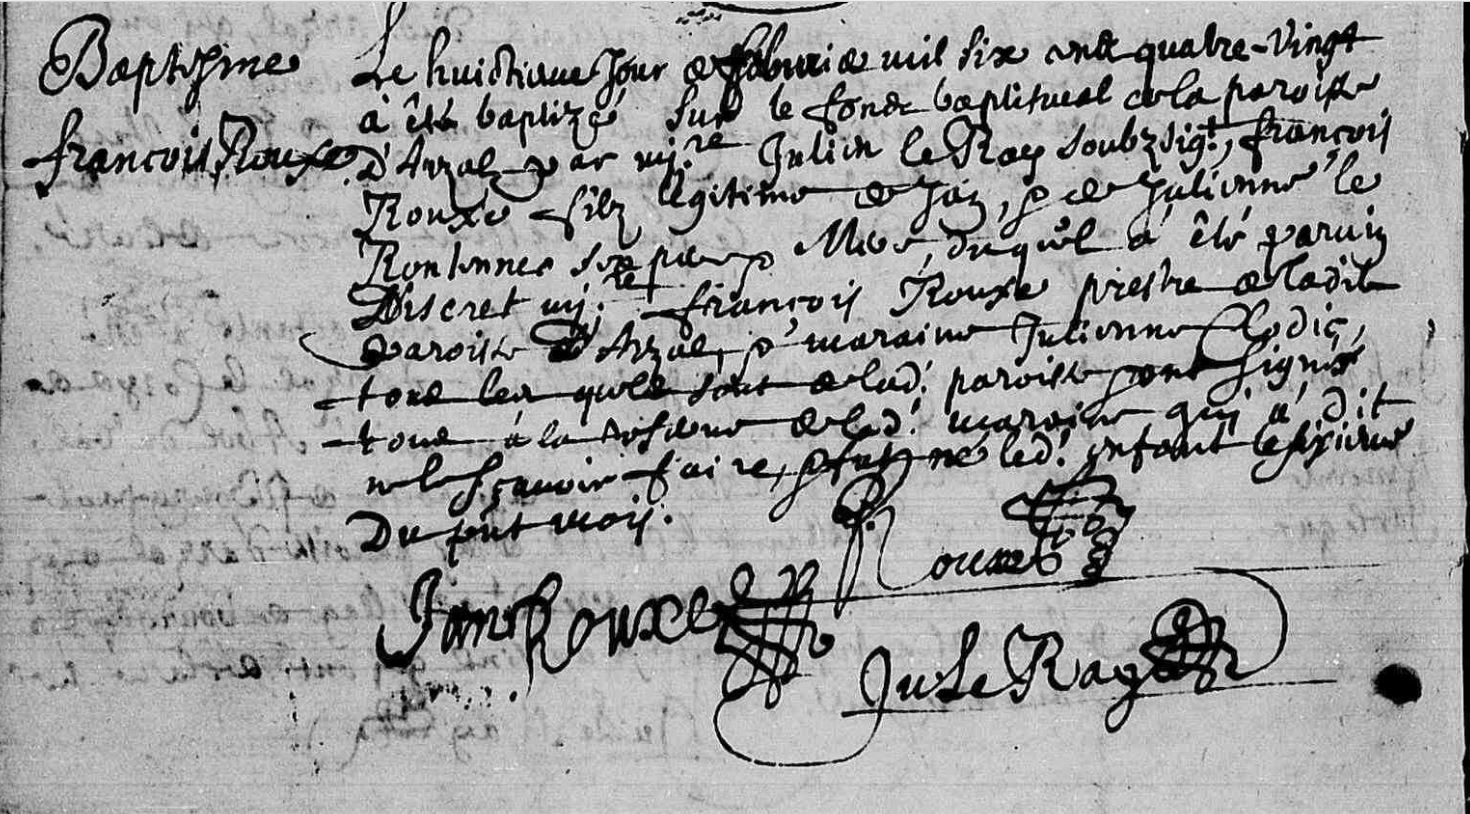 Baptesme
francois Rouxe
Le huictieme Jour de febvrie mil six cents quatre-vingt
à été baptizé sur le fonds baptismal de la paroisse
d'Arzal par mi.re Julien le Ray soubzsig.t, francois
Rouxe filz legitime de Jan, & de Julienne le
ses pere & Mere, duquel a été parain
Discret mi.re françois Rouxe prestre de ladite
paroisse d'Arzal, & maraine Julienne Clodic,
tous lesquels sont de lad. paroisse & ont signés
tous à la reserve de lad. maraine qui a dit
ne le sçavoir faire, & fut né led. enfant le sixieme
Du p̃nt mois.
F. Rouxe
Jan Rouxe
Ju Le Ray